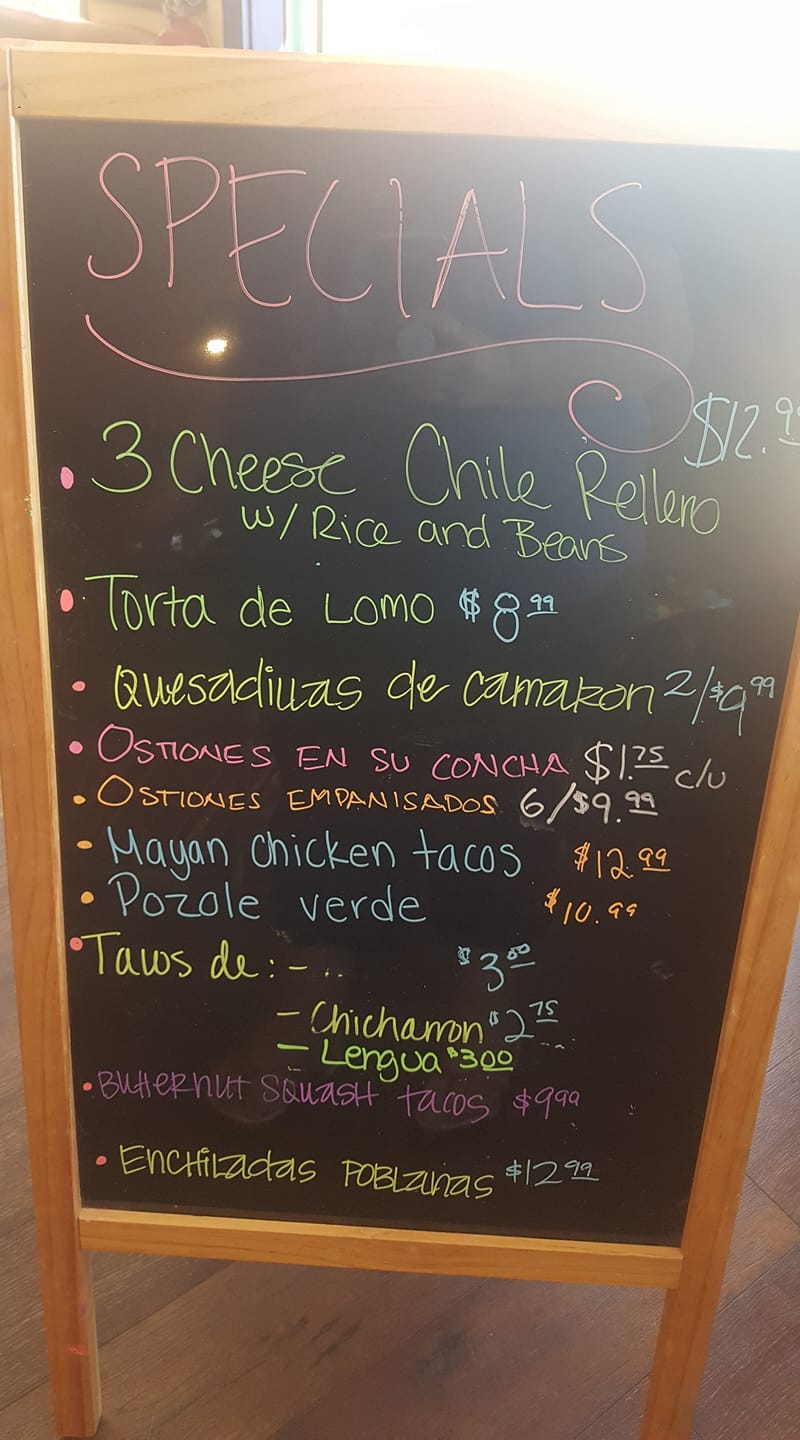 SPECIALS
$12.99
• 3 Cheese Chile Rellero
w/ Rice and Beans
• Torta de Lomo $8.99
• Quesadillas de camaron 2/$9.99
• OSTIONES EN SU CONCHA $1.75 c/u
• OSTIONES EMPANISADOS 6/$9.99
• Mayan chicken tacos $12.99
• Pozole verde $10.99
• Tacos de: - .. $3.00
- Chicharron $2.75
- Lengua $3.00
• Butternut Squash tacos $9.99
• Enchiladas Poblanas $12.99